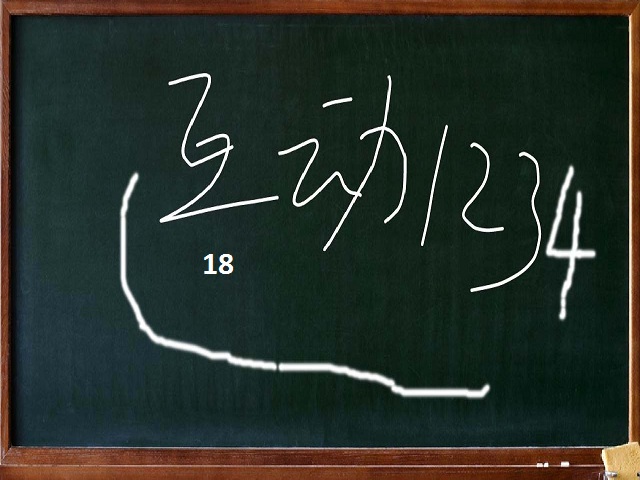 互动1234
18